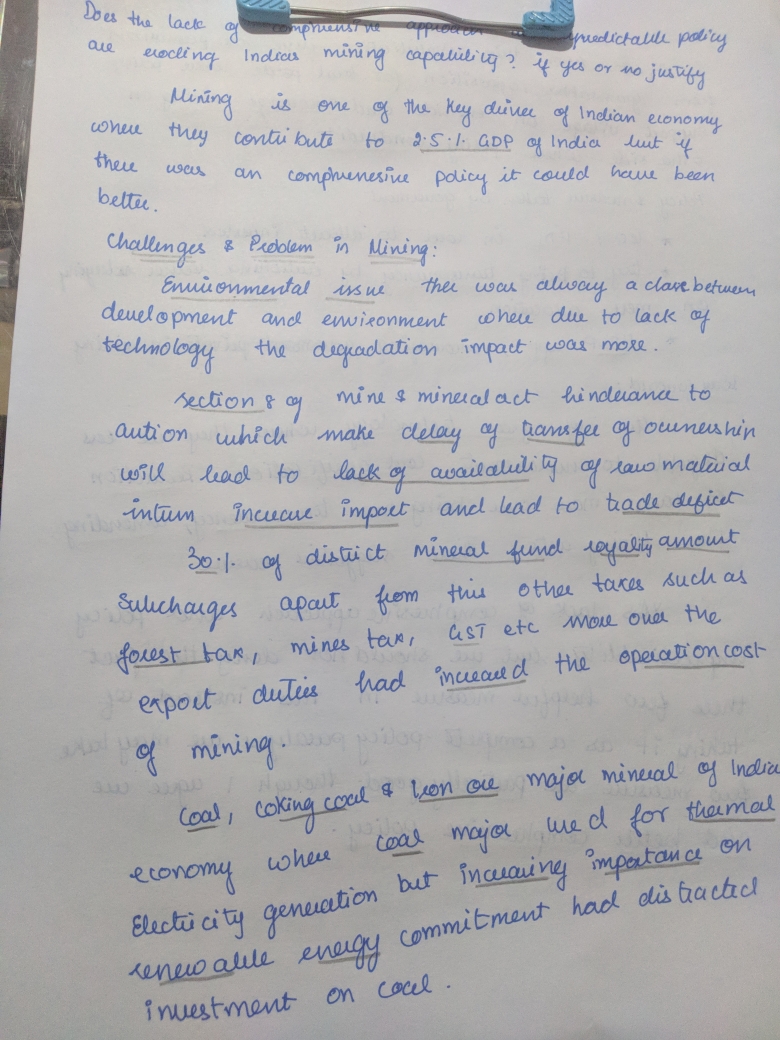 Does the lack of comphrensive approach predictable policy
are erocling Indias mining capability? if yes or no justify
Mining is one of the key driver of Indian economy
where they contribute to 2.5.1. GDP of India but if
there was an comphrenesive policy it could have been
better.
Challenges & Problem in Mining:
Environmental issue ther was alway a clase between
development and environment where due to lack of
technology the degradation impact was more.
section 8 of mine & mineral act hinderance to
aution which make delay of transfer of ownership
will lead to lack of availability of raw material
inturn increase import and lead to trade deficit
30.1. of district mineral fund royality amount
Subcharges apart from this other taxes such as
forest tax, mines tax, GST etc more over the
export duties had increased the operation cost
of mining.
Coal, coking coal & Iron ore major mineral of India
economy where coal major used for thermal
Electricity generation but increasing importance on
renewable energy commitment had distracted
investment on coal.